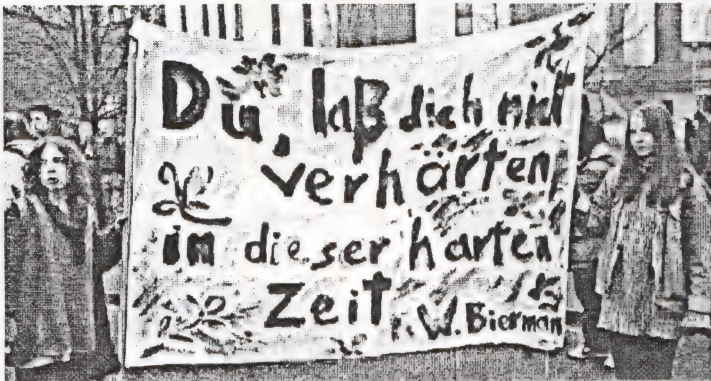 Du, laß dich nicht
verhärten
in dieser harten
Zeit
W. Bierman